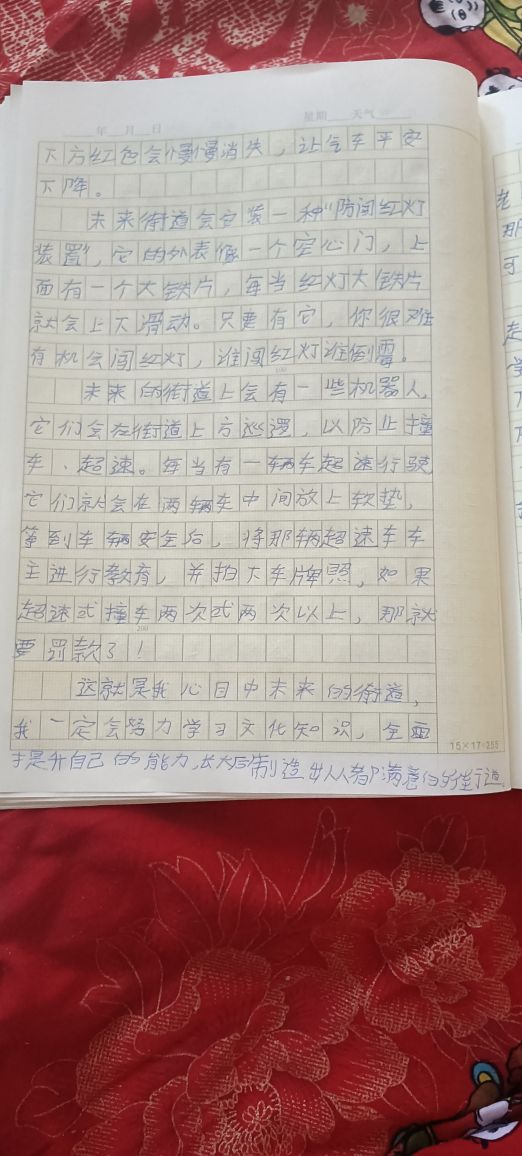 年 月 日 星期 天气
下方红色会慢慢消失，让汽车平安
下降。
未来街道会安装一种“防闯红灯
装置”，它的外表像一个空心门，上
面有一个大铁片，每当红灯大铁片
就会上下滑动。只要有它，你很难
有机会闯红灯，谁闯红灯谁倒霉。
未来的街道上会有一些机器人，
它们会在街道上方巡逻，以防止撞
车、超速。每当有一辆车超速行驶
它们就会在两辆车中间放上软垫，
等到车辆安全后，将那辆超速车车
主进行教育，并拍下车牌照，如果
超速或撞车两次或两次以上，那就
要罚款了！
这就是我心目中未来的街道，
我一定会努力学习文化知识，全面
15×17=255
提升自己的能力，长大后制造出人人都满意的街道